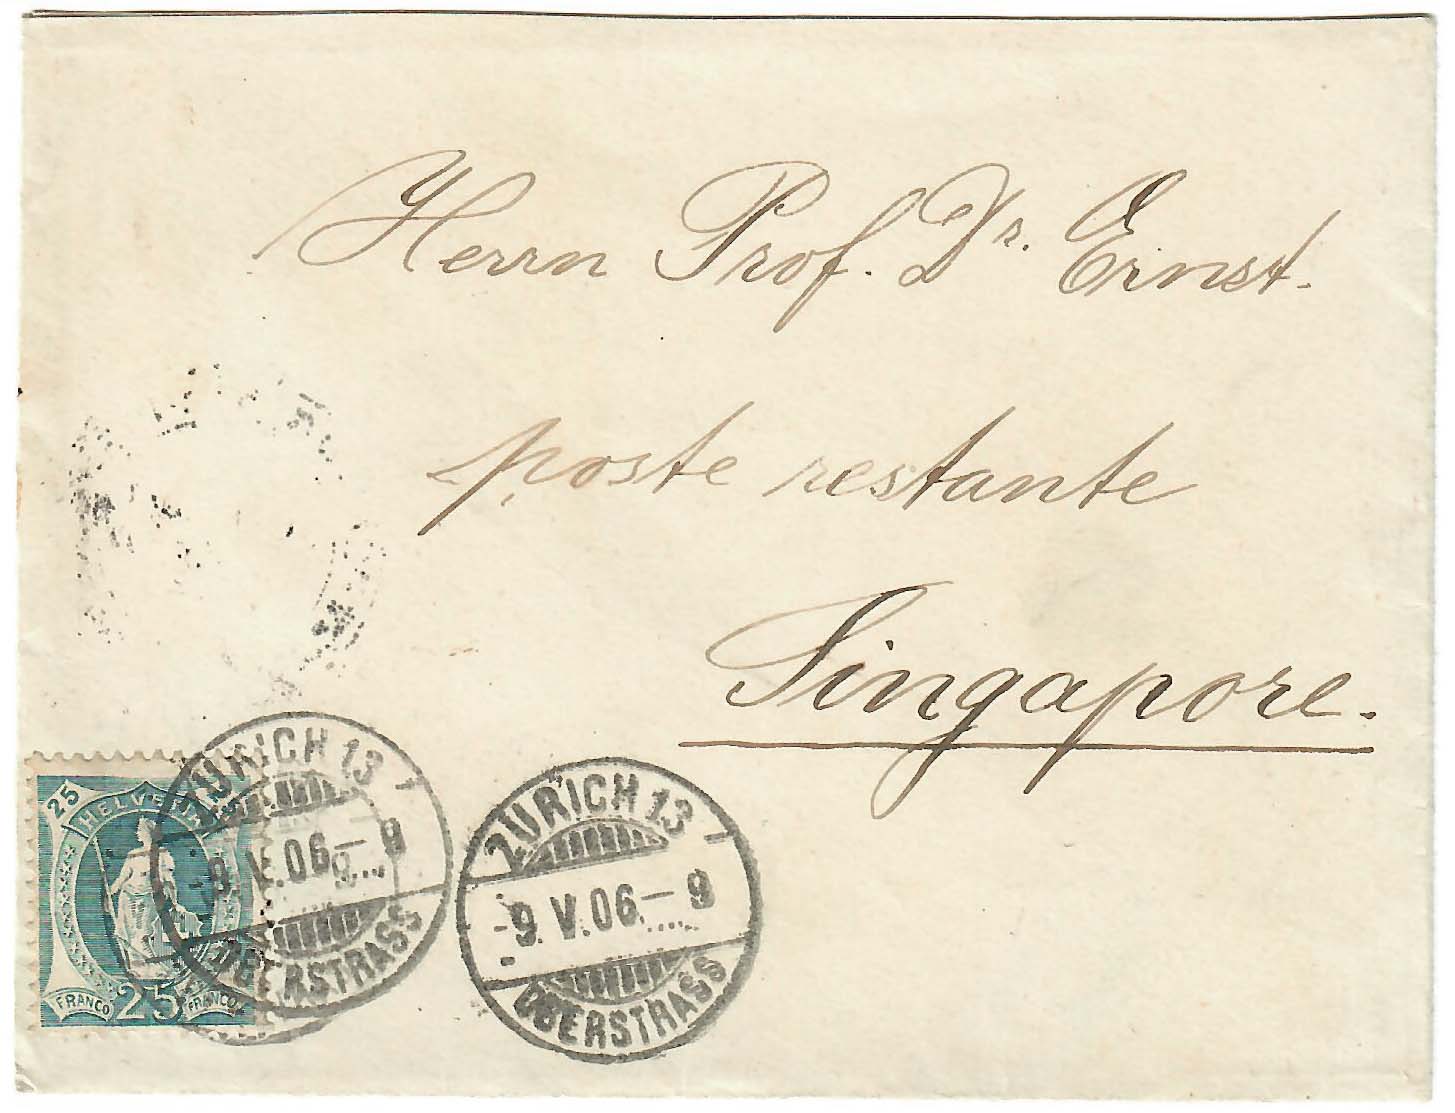 Herrn Prof. Dr. Ernst.
poste restante
Singapore.
ZÜRICH 13
-9. V. 06.-9
OBERSTRASS
ZÜRICH 13
-9. V. 06.-9
OBERSTRASS
25
HELVETIA
FRANCO 25 FRANCO